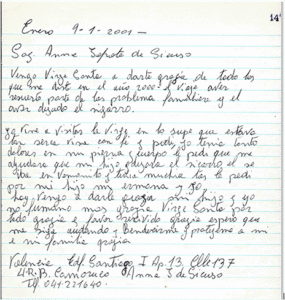 14
Enero 9-1-2001-
Soy Anna Zapote de Sicuso
Vengo Virge Santa a darte gracia de todo los
que me dist en el año 2000 y Vejo aver
resuerto parte de los problema familiare y el
aver dejado el sigarro.
ya Vine a Vistar la Virge, en lo supe que estava
tan seria vine con fe y pedi, yo tenia tanto
dolores en mi pierna y cuerpo le pedi que me
ayudara que mi hijo dejara el sicarro el se
iba en vomanito y todia mucha tos le pedi
por mi hijo mi ermana y yo
hoy Vengo a darte gracia mi hijo y yo
no fumamo mas gracia Virge Santa por
todo gracia a favor resivido gracia espero que
me siga ayudando y Bendisirme y protegeme a mi
e mi familia gracia
Valencia Edf Santiago I Ap. 13 Clle 137
Urb. Camoruco Anna S de Sicuso
Tlf 041.221640.